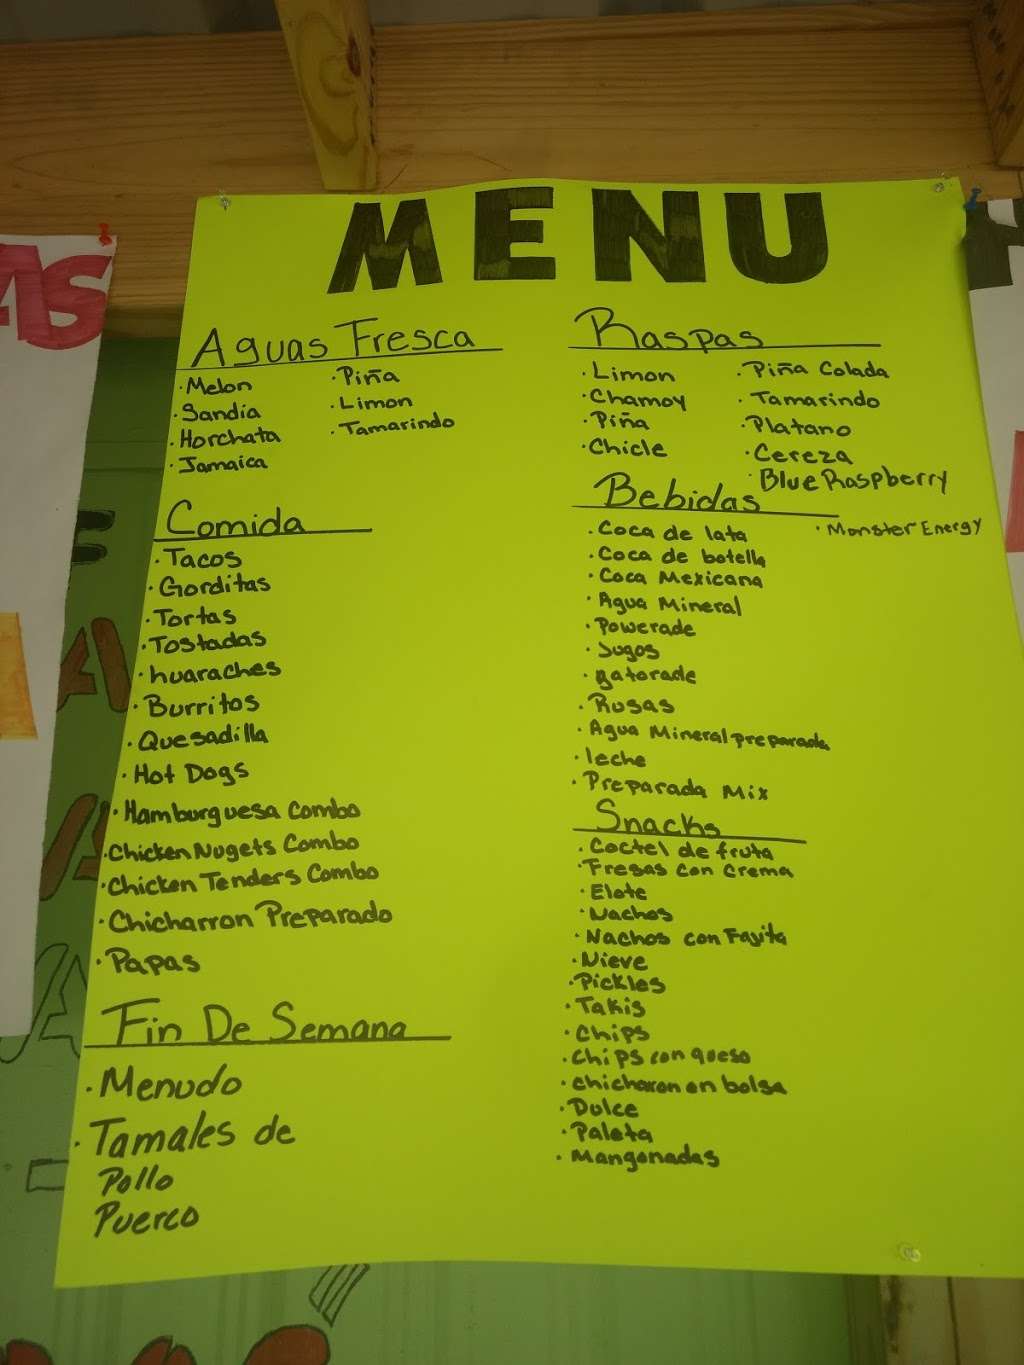 MENU
Aguas Fresca
· Melon
· Sandia
· Horchata
· Jamaica
· Piña
· Limon
· Tamarindo
Comida
· Tacos
· Gorditas
· Tortas
· Tostadas
· huaraches
· Burritos
· Quesadilla
· Hot Dogs
· Hamburguesa Combo
· Chicken Nugets Combo
· Chicken Tenders Combo
· Chicharron Preparado
· Papas
Fin De Semana
· Menudo
· Tamales de
Pollo
Puerco
Raspas
· Limon
· Chamoy
· Piña
· Chicle
· Piña Colada
· Tamarindo
· Platano
· Cereza
· Blue Raspberry
Bebidas
· Coca de lata
· Coca de botella
· Coca Mexicana
· Agua Mineral
· Powerade
· Jugos
· gatorade
· Rusas
· Agua Mineral preparada
· leche
· Preparada Mix
· Monster Energy
Snacks
· Coctel de fruta
· Fresas con crema
· Elote
· Nachos
· Nachos con Fayita
· Nieve
· Pickles
· Takis
· Chips
· Chips con queso
· chicharon en bolsa
· Dulce
· Paleta
· Mangonadas
AS